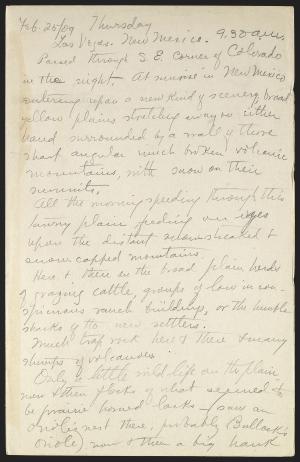 Feb. 25/09 Thursday
Las Vegas. New Mexico. 9.30 a.m.
Passed through S.E. corner of Colorado
in the night. At sunrise in New Mexico
entering upon a new kind of scenery, broad
yellow plains stretching away on either
hand surrounded by a wall of those
sharp angular much broken volcanic
mountains, with snow on their
summits.
All the morning speeding through this
tawny plain feeding our eyes
upon the distant snow-streaked &
snow capped mountains.
Here & there in the broad plain herds
of grazing cattle, groups of low incon-
spicuous ranch buildings, or the humble
shacks of the new settlers.
Much trap rock here & there & many
stumps of volcanoes.
Only a little wild life on the plain
now & then flocks of what seemed to
be prairie horned larks – saw an
oriole's nest there, probably Bullock's
oriole), now & then a big hawk